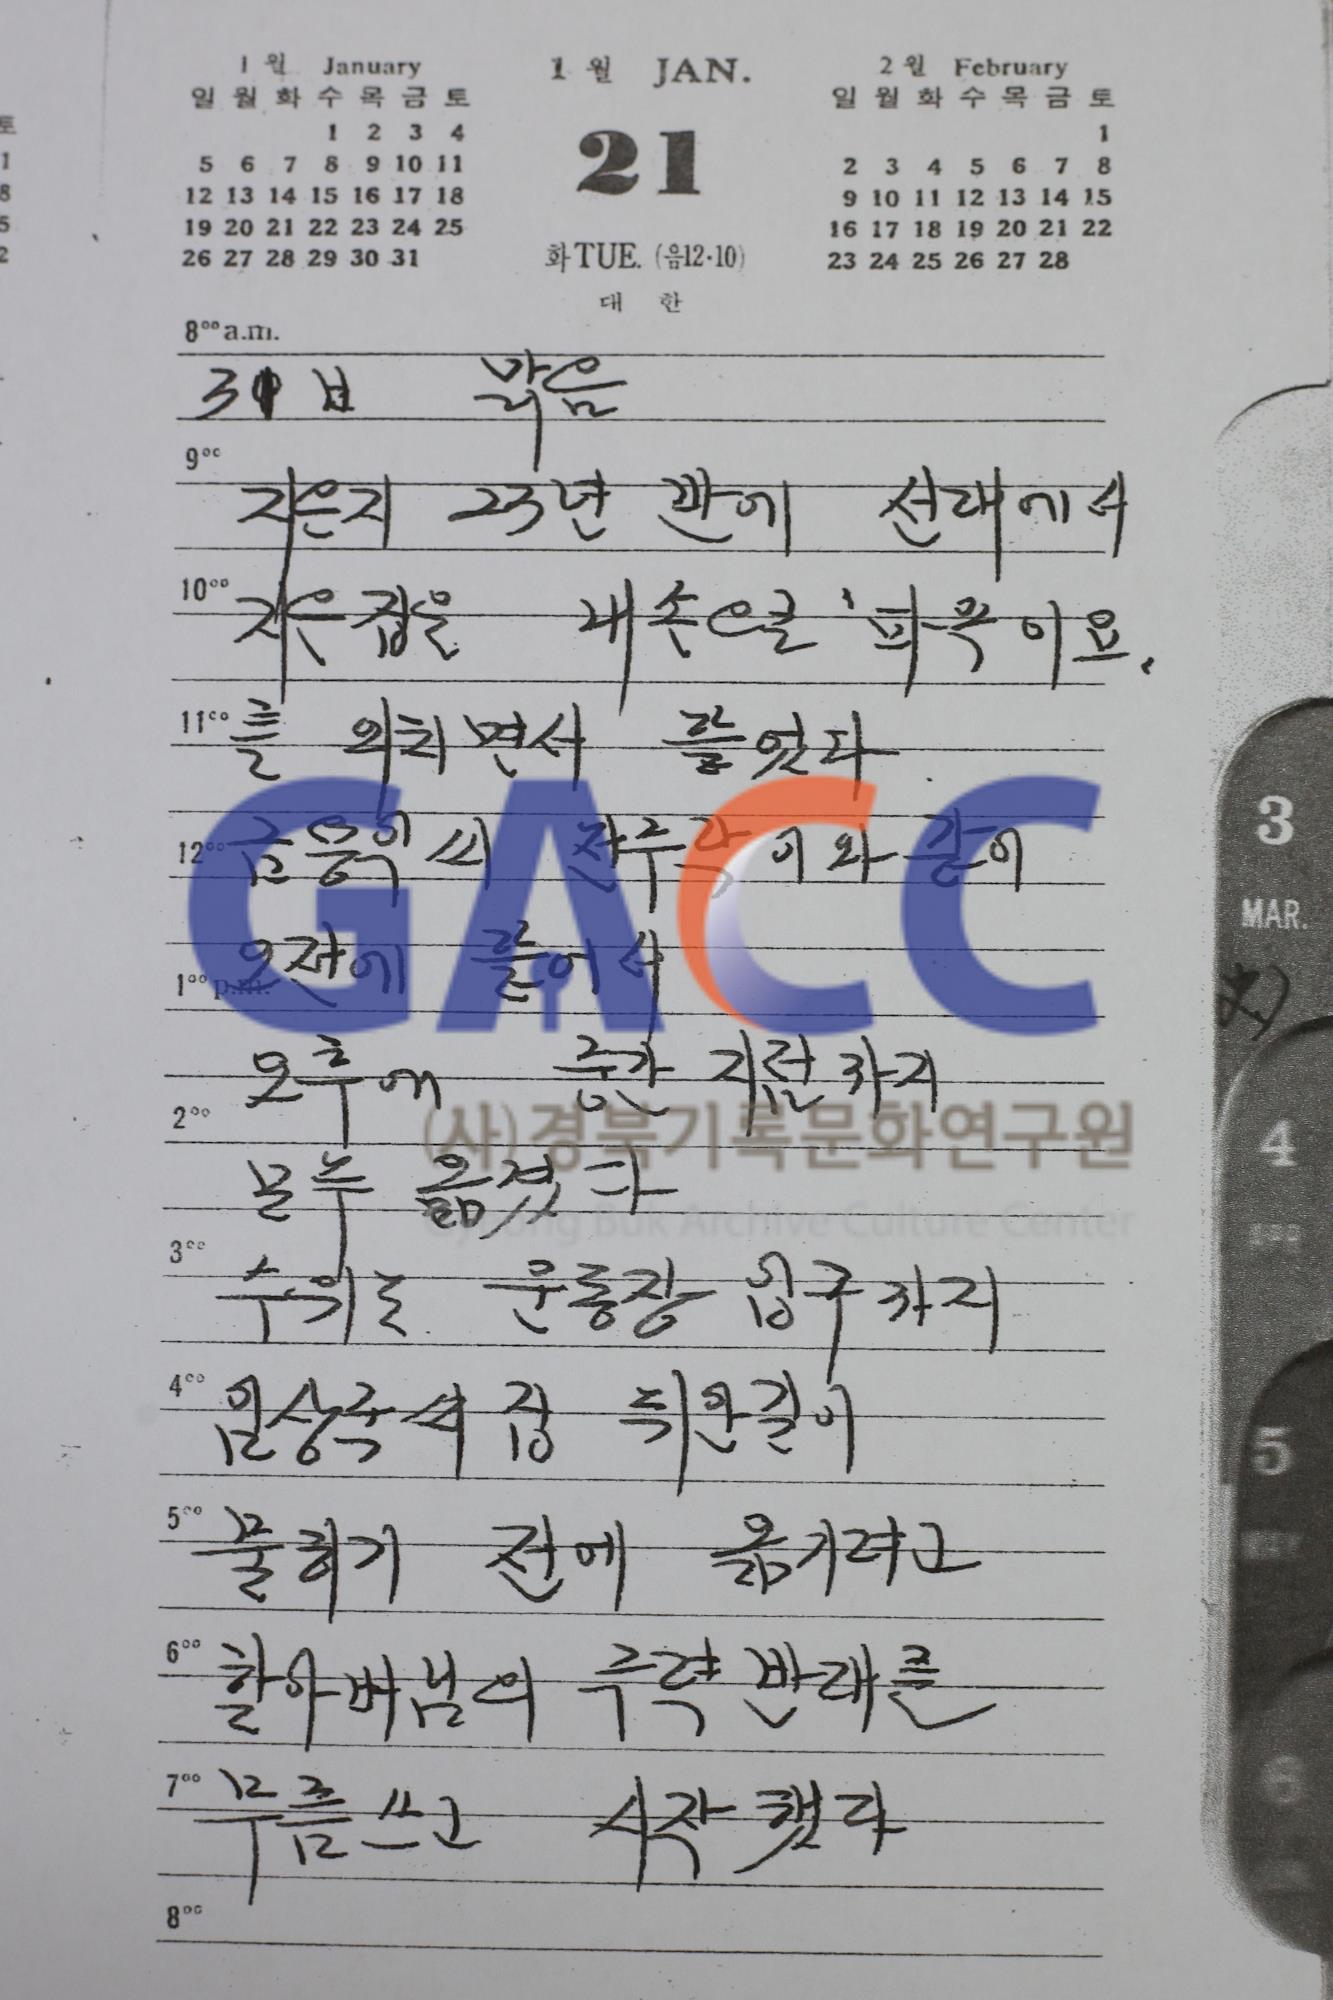 1 월 January
일 월 화 수 목 금 토
1 2 3 4
5 6 7 8 9 10 11
12 13 14 15 16 17 18
19 20 21 22 23 24 25
26 27 28 29 30 31
1 월 JAN.
21
화 TUE. (음12·10)
대 한
2 월 February
일 월 화 수 목 금 토
1
2 3 4 5 6 7 8
9 10 11 12 13 14 15
16 17 18 19 20 21 22
23 24 25 26 27 28
8⁰⁰ a.m.
맑음
9⁰⁰
지은지 23년 만에 선대에서
10⁰⁰
지은집을 내손으로 파묵이요.
11⁰⁰
를 외치면서 뜯었다
12⁰⁰
이와 같이
오전에 뜯어서
1⁰⁰ p.m.
오후에 까지
2⁰⁰
모두 옮겼다
3⁰⁰
수의는 운동장 입구까지
4⁰⁰
임상국씨 집 뒤안길이
5⁰⁰
전에 옮기려고
6⁰⁰
할아버님의 반대를
7⁰⁰
무릅쓰고 시작했다
8⁰⁰
3
MAR.
4
5
6
GACC
(사)경북기록문화연구원
Gyeong Buk Archive Culture Center